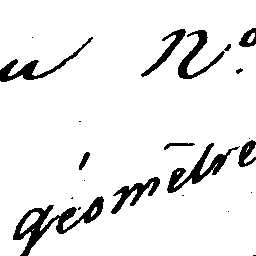 u N°.
géomètre